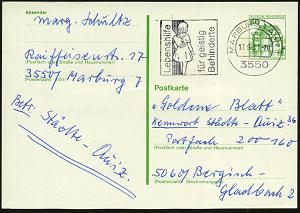 Absender
marg. Schultz
Raiffeisenstr. 17
(Straße und Hausnummer)
35507 Marburg 7
(Postleitzahl) (Ort)
Betr. Städte-Quiz.
Lebenshilfe
für geistig
Behinderte
MARBURG
3550
DEUTSCHE BUNDESPOST
Postkarte
"Goldene Blatt"
Kennwort Städte-Quiz 36
Postfach 200-160
(Postfach oder Straße und Hausnummer)
50609 Bergisch-
(Postleitzahl) (Bestimmungsort)
Gladbach 2